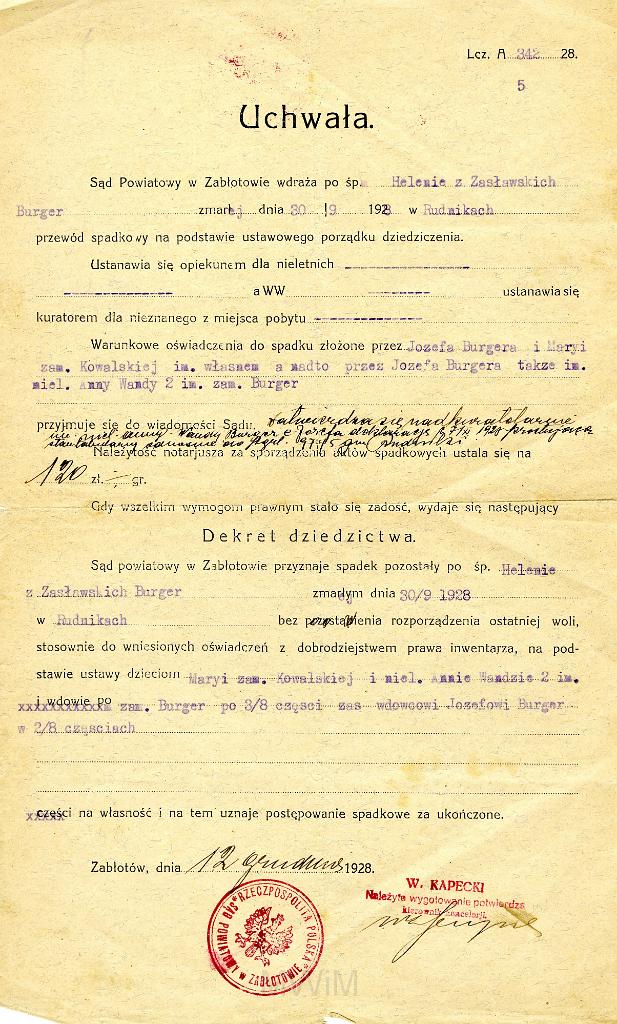 Lcz. A 342 28.
5
Uchwała.
Sąd Powiatowy w Zabłotowie wdraża po śp. Helenie z Zasławskich
Burger zmarłej dnia 30 !9 1928 w Rudnikach
przewód spadkowy na podstawie ustawowego porządku dziedziczenia.
Ustanawia się opiekunem dla nieletnich ----------------
-------------- a WW -------- ustanawia się
kuratorem dla nieznanego z miejsca pobytu --------------
Warunkowe oświadczenia do spadku złożone przez Jozefa Burgera i Maryi
zam. Kowalskiej im. własnem a nadto przez Jozefa Burgera takze im.
niel. Anny Wandy 2 im. zam. Burger
przyjmuje się do wiadomości Sądu, zatwierdza się nadkuratelarnie
im. niel. Anny Wandy Burger 1928
Należytość notarjusza za sporządzenie aktów spadkowych ustala się na
120 zł. -,- gr.
Gdy wszelkim wymogom prawnym stało się zadość, wydaje się następujący
Dekret dziedzictwa.
Sąd powiatowy w Zabłotowie przyznaje spadek pozostały po śp. Helenie
z Zasławskich Burger zmarłym ej dnia 30/9 1928
w Rudnikach bez rozporządzenia ostatniej woli,
stosownie do wniesionych oświadczeń z dobrodziejstwem prawa inwentarza, na pod-
stawie ustawy dzieciom Maryi zam. Kowalskiej i niel. Annie Wandzie 2 im.
i wdowie po
xxxxxxxxxxxm zam. Burger po 3/8 części zas wdowcowi Jozefowi Burger
w 2/8 częsciach
xxxxx części na własność i na tem uznaje postępowanie spadkowe za ukończone.
Zabłotów, dnia 12 grudnia 1928.
W. KAPECKI
Należyte wygotowanie potwierdza
kierownik kancelarji
SĄD POWIATOWY w ZABŁOTOWIE * RZECZPOSPOLITA POLSKA *
MWiM